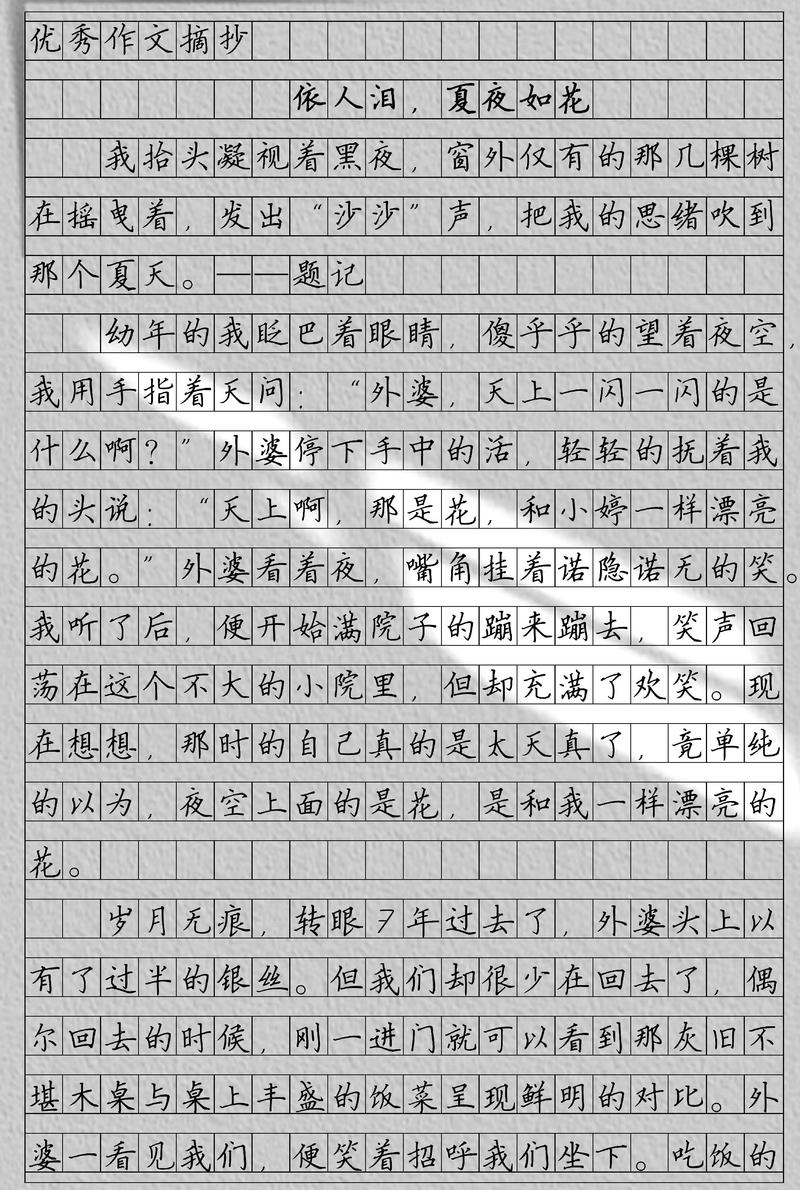 优秀作文摘抄
依人泪，夏夜如花
我抬头凝视着黑夜，窗外仅有的那几棵树
在摇曳着，发出“沙沙”声，把我的思绪吹到
那个夏天。——题记
幼年的我眨巴着眼睛，傻乎乎的望着夜空，
我用手指着天问：“外婆，天上一闪一闪的是
什么啊？”外婆停下手中的活，轻轻的抚着我
的头说：“天上啊，那是花，和小婷一样漂亮
的花。”外婆看着夜，嘴角挂着诺隐诺无的笑。
我听了后，便开始满院子的蹦来蹦去，笑声回
荡在这个不大的小院里，但却充满了欢笑。现
在想想，那时的自己真的是太天真了，竟单纯
的以为，夜空上面的是花，是和我一样漂亮的
花。
岁月无痕，转眼7年过去了，外婆头上以
有了过半的银丝。但我们却很少在回去了，偶
尔回去的时候，刚一进门就可以看到那灰旧不
堪木桌与桌上丰盛的饭菜呈现鲜明的对比。外
婆一看见我们，便笑着招呼我们坐下。吃饭的